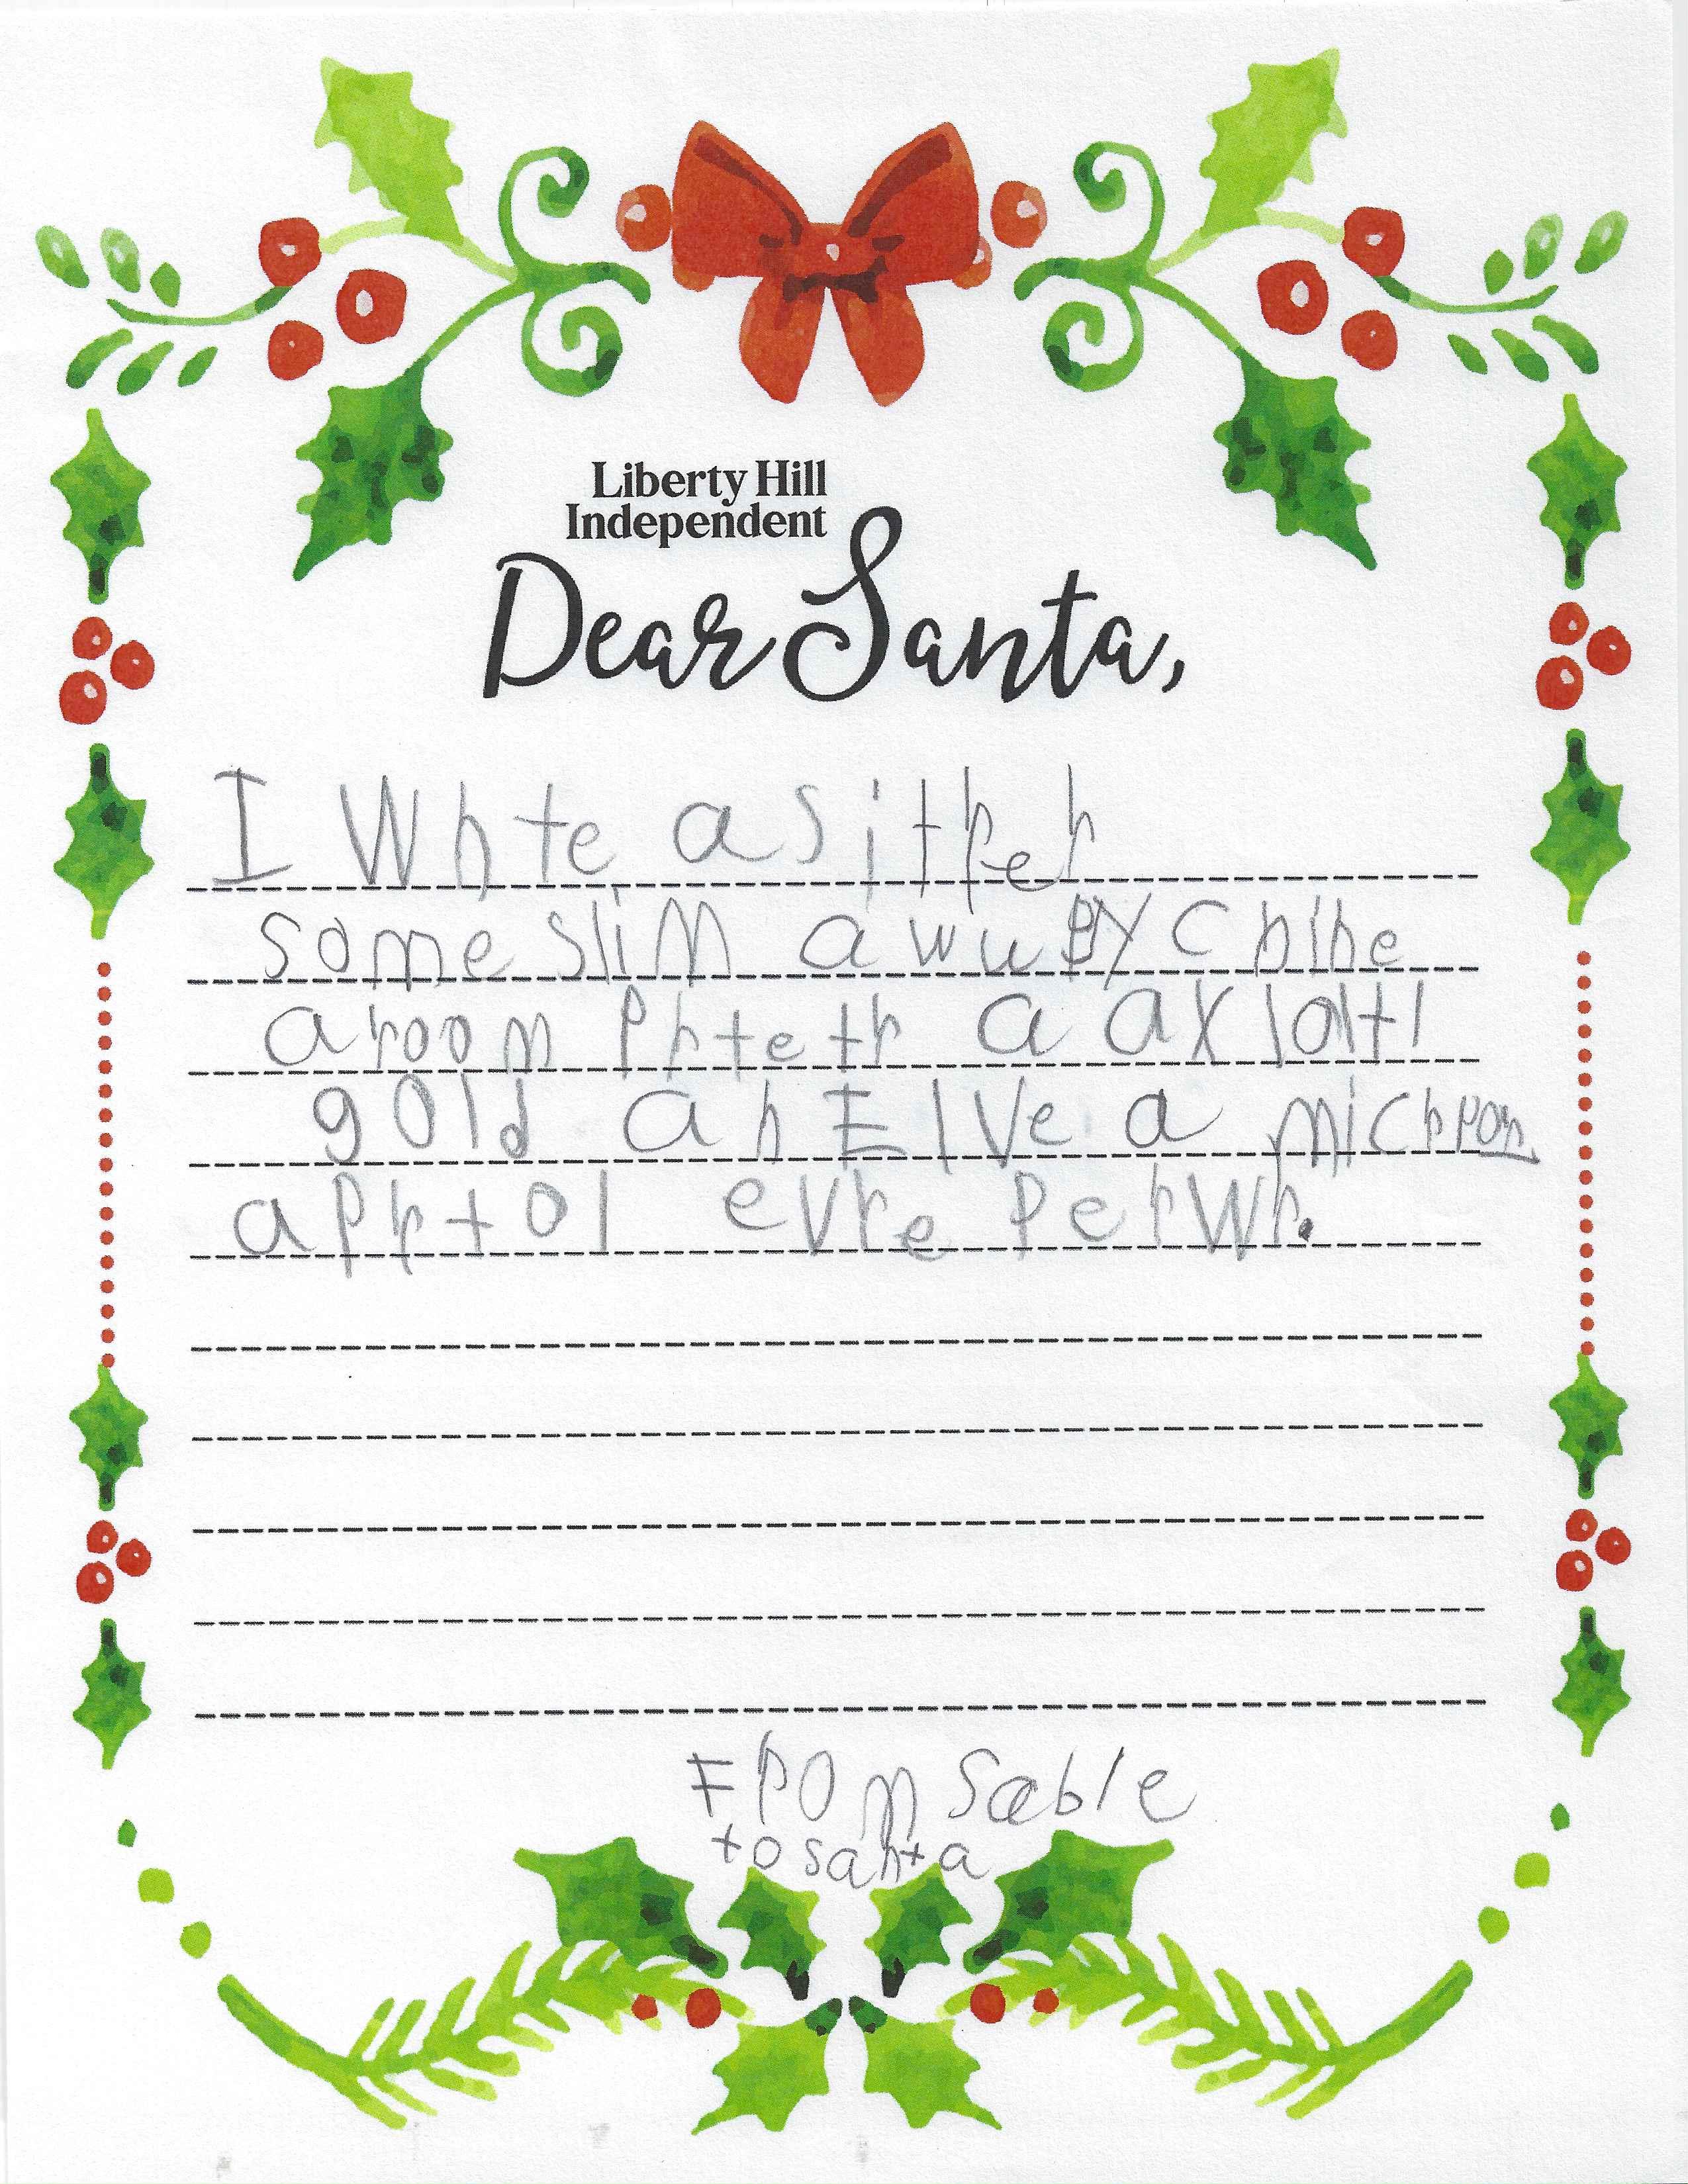 Liberty Hill
Independent
Dear Santa,
I Whte a sitrer
some sliM a wu BY C hihe
a room Prteth a axlolti
gold ah Elve a michron
a Prtol evre Perwr.
From Sable
to santa